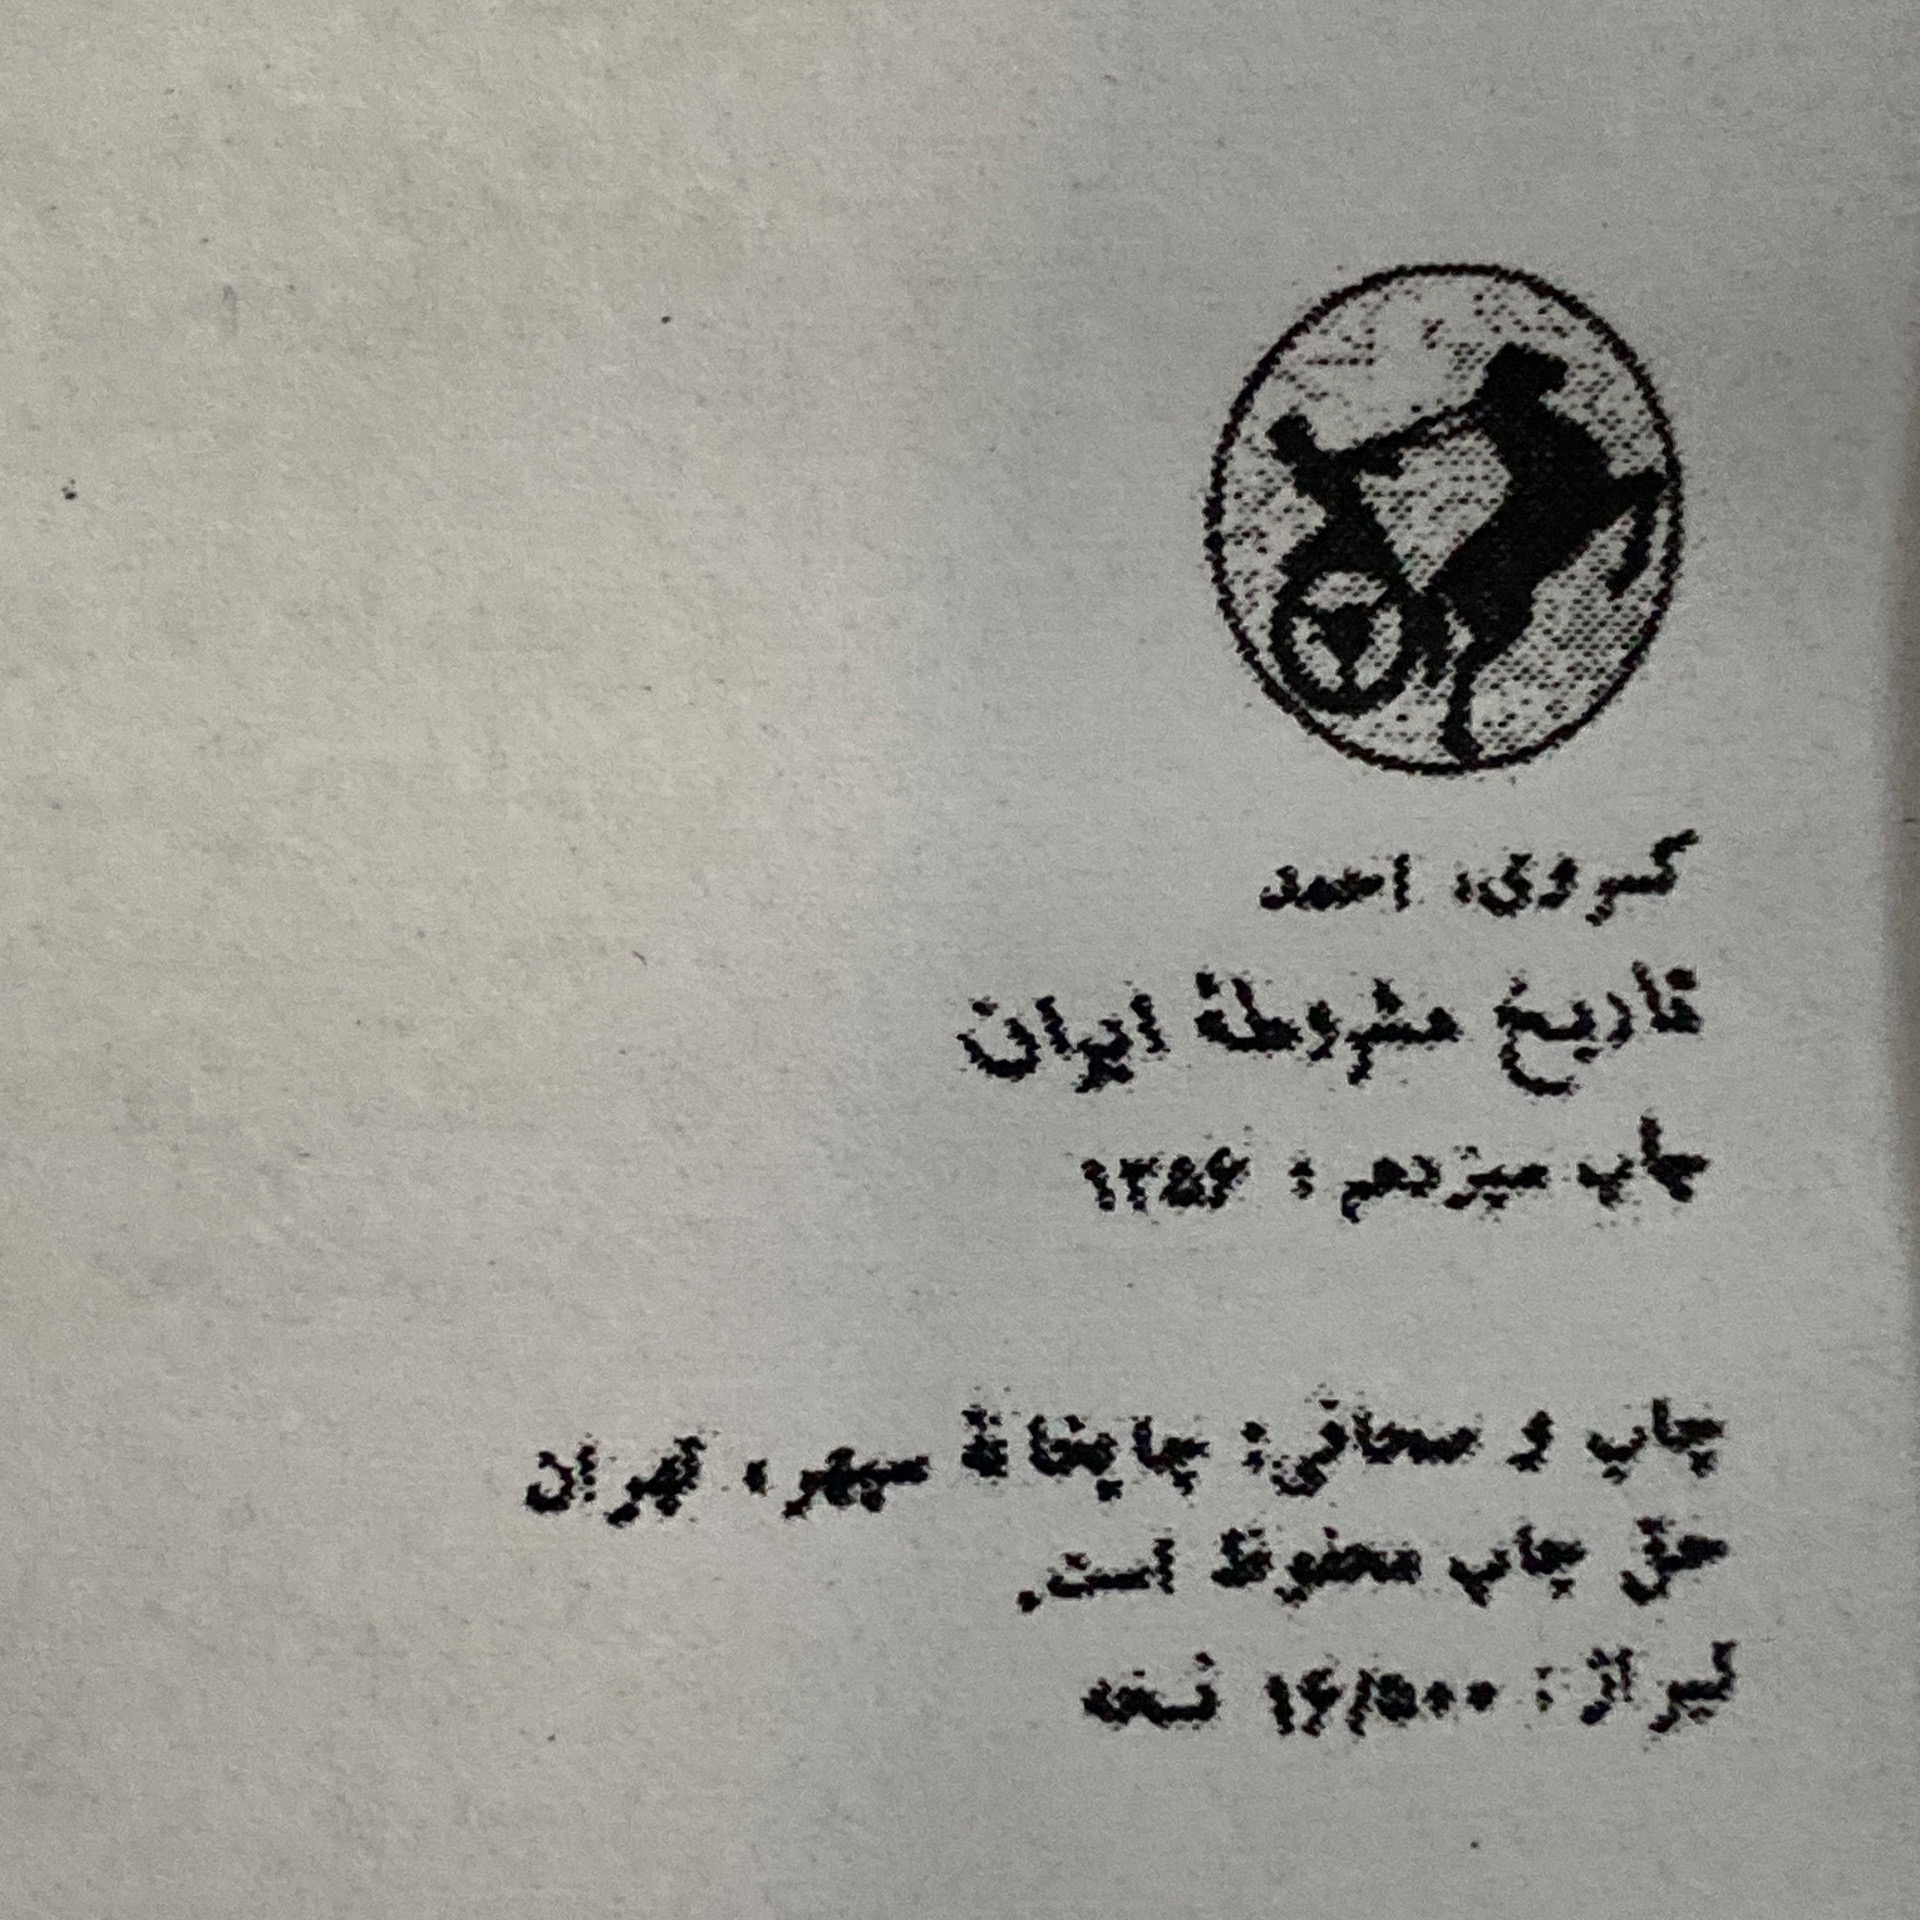 کسروی، احمد
تاریخ مشروطهٔ ایران
چاپ سیزدهم : ۱۳۵۶
چاپ و صحافی: چاپخانهٔ سپهر، تهران
حق چاپ محفوظ است.
تیراژ : ۱۶/۵۰۰ نسخه